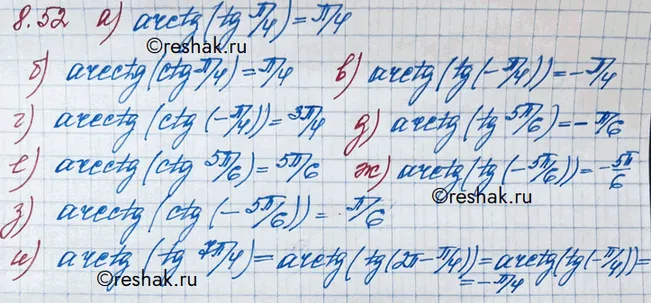 8.52 а) arctg(tg π/4) = π/4
©reshak.ru
б) arcctg(ctg π/4) = π/4 в) arctg(tg(-π/4)) = -π/4
г) arcctg(ctg(-π/4)) = 3π/4 д) arctg(tg 5π/6) = -π/6
е) arcctg(ctg 5π/6) = 5π/6 ж) arctg(tg(-5π/6)) = -5π/6
з) arcctg(ctg(-5π/6)) = π/6
и) arctg(tg 7π/4) = arctg(tg(2π-π/4)) = arctg(tg(-π/4)) =
= -π/4
©reshak.ru